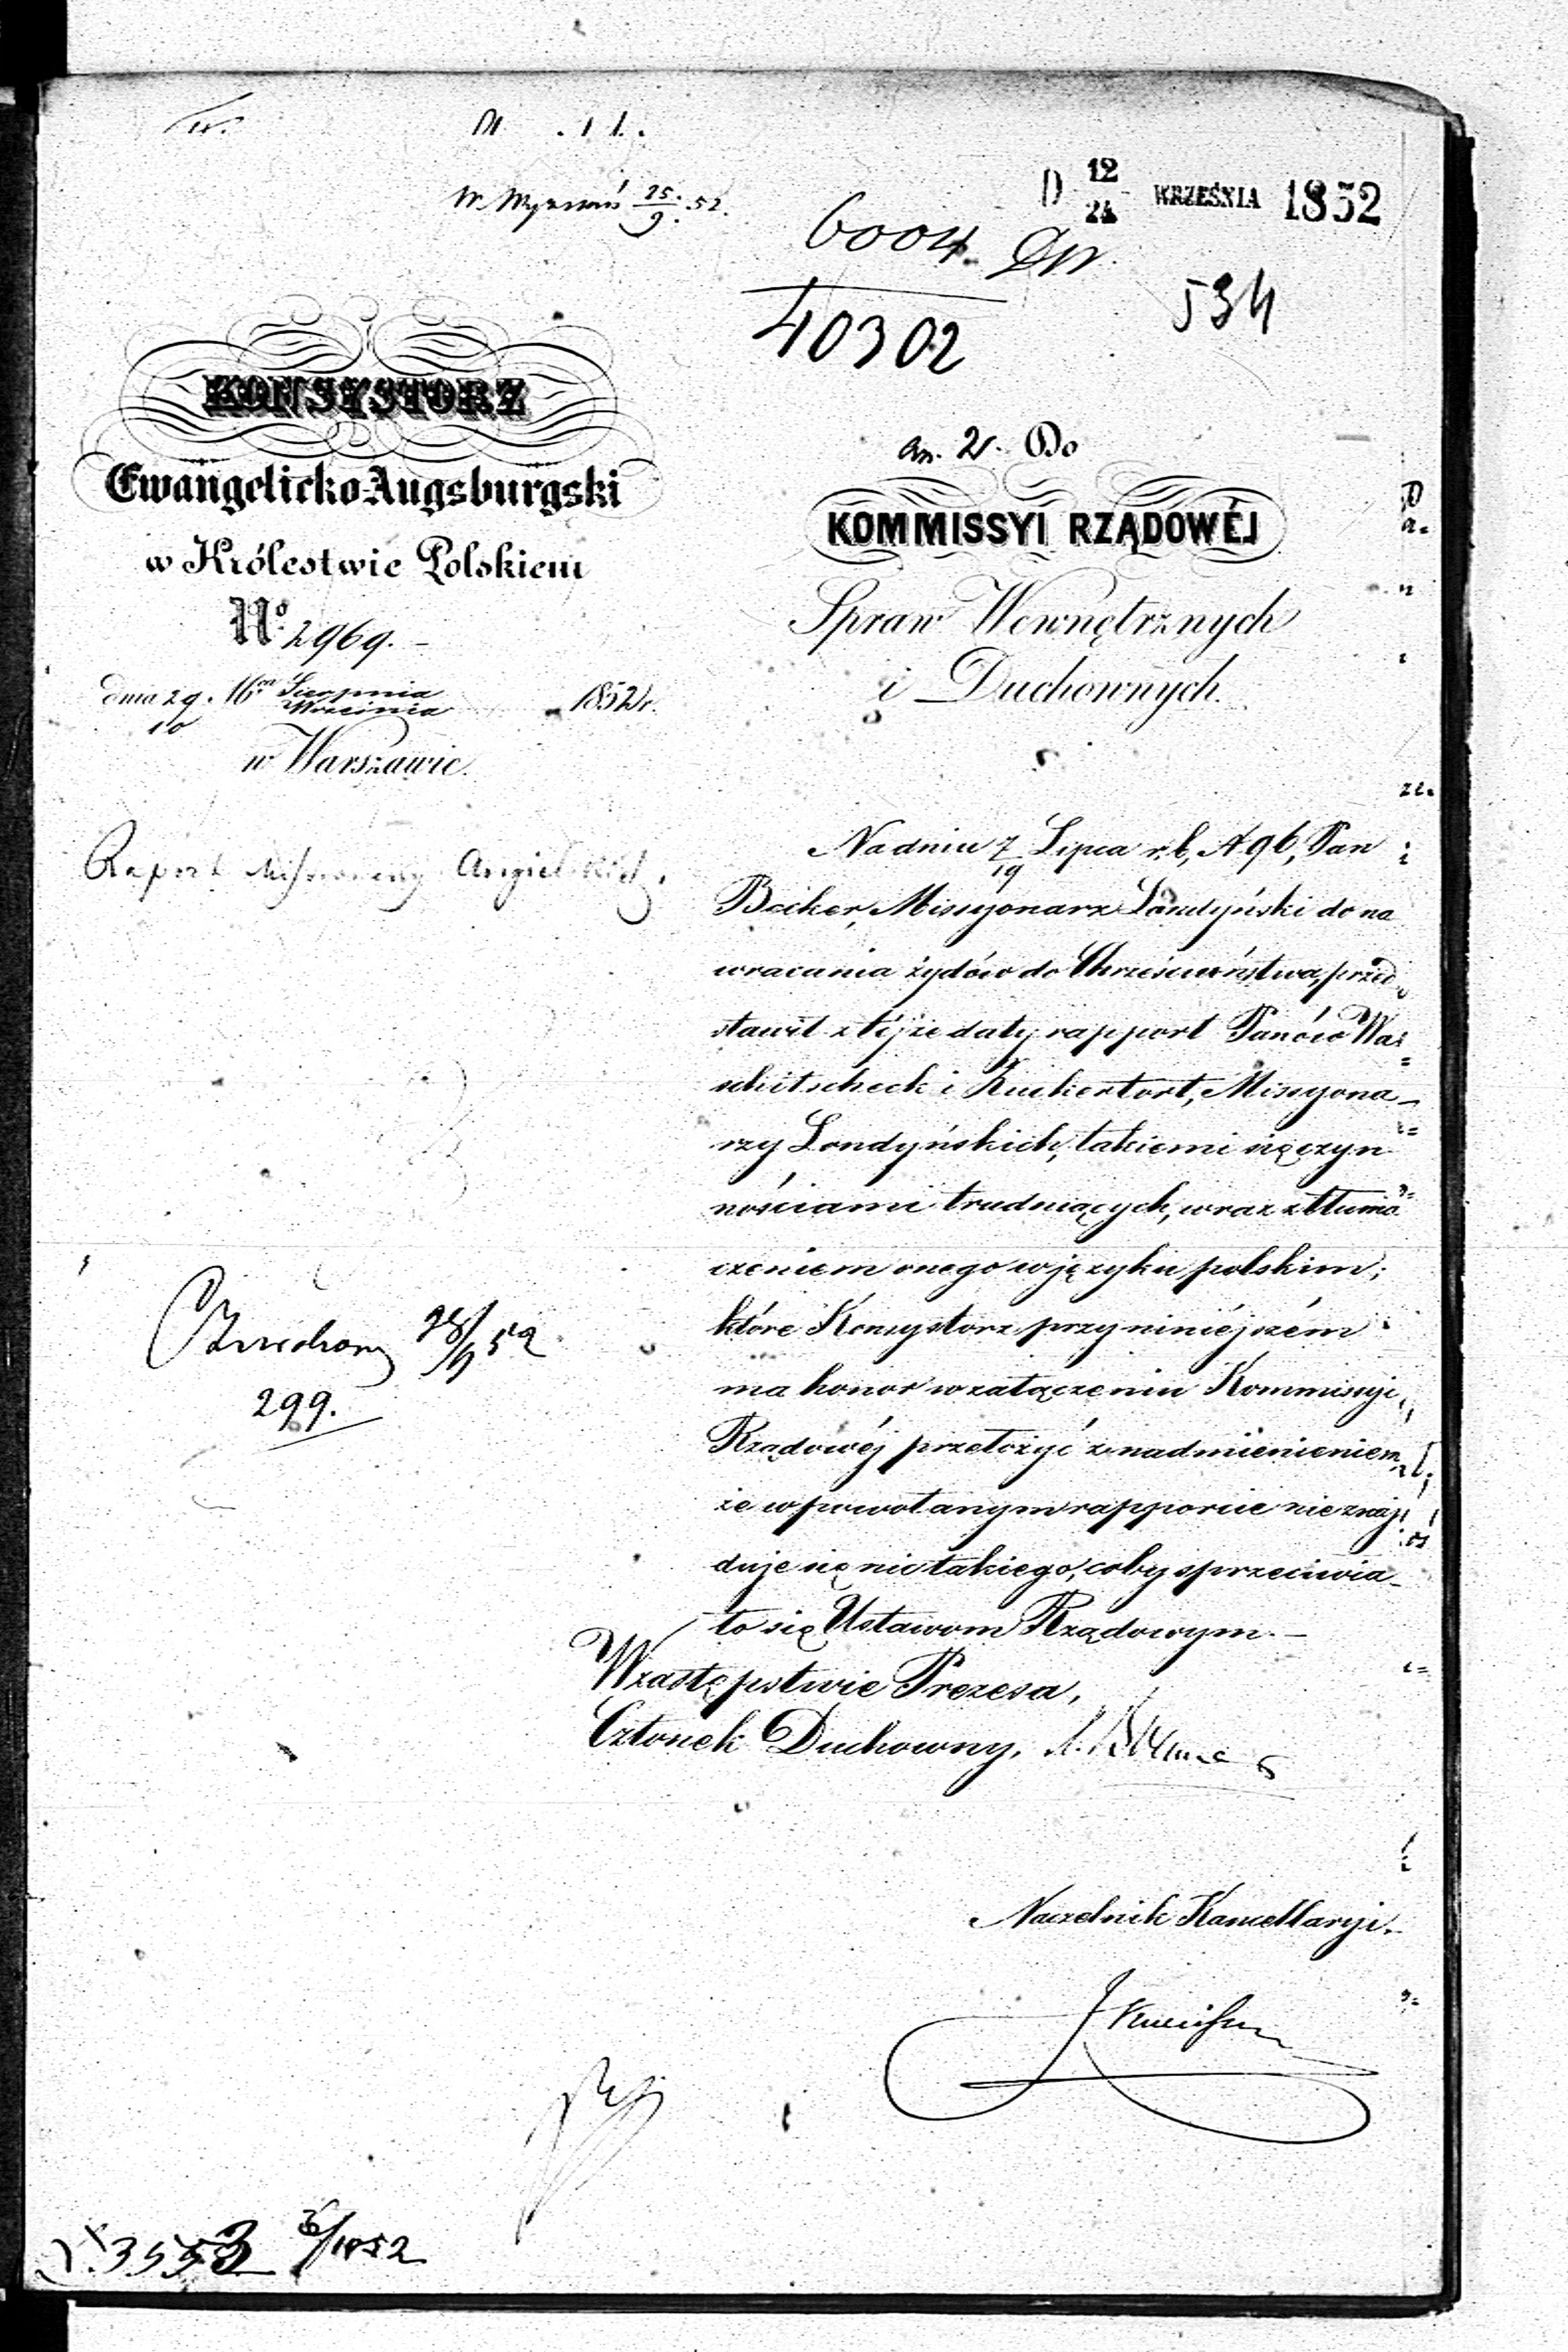 D 12/24 WRZEŚNIA 1852
25/9 52.
6004
40302
534
KONSYSTORZ
Ewangelicko-Augsburgski
w Królestwie Polskiem
No. 2969.
dnia 29. Sierpnia 1852 r.
10 Września
w Warszawie.
Raport Angielskich
an. 2. Do
KOMMISSYI RZĄDOWÉJ
Spraw Wewnętrznych
i Duchownych.
Na dniu 7/19 Lipca r. b, N 96, Pan
Beiker, Missyonarz Londyński do na
wracania żydów do Chrześciaństwa, przed
stawił z téjże daty rapport Panów Wa
schitscheck i Kuckertort, Missyona-
rzy Londyńskich, takiemi się czyn
nościami trudniących, wraz z tłuma
czeniem onego w języku polskim;
które Konsystorz przy niniéjszém
ma honor w załączeniu Kommissyi
Rządowéj przełożyć z nadmienieniem,
że w powołanym rapporcie nie znaj
duje się nic takiego, coby sprzeciwia-
ło się Ustawom Rządowym.-
W zastępstwie Prezesa,
Członek Duchowny,
28/9 52
299.
Naczelnik Kancellaryi.
3553 /1852